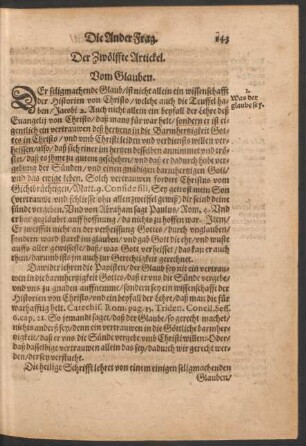 Die Ander Frag. 143
Der Zwölffte Artickel.
Vom Glauben.
DEr seligmachende Glaub/ ist nicht allein ein wissenschafft
der Historien von Christo/ welche auch die Teuffel ha-
ben/ Jacobi 2. Auch nicht allein ein beyfall der Lehre deß
Euangelij von Christo/ daß mans für war helt/ sondern er ist ei-
gentlich ein vertrawen deß hertzens in die Barmhertzigkeit Got-
tes in Christo/ vnd vmb Christi leiden vnd verdiensts willen ver-
heissen/ also/ daß sich einer im hertzen desselben annimmet vnd trö-
stet/ daß es jhme zu gutem geschehen/ vnd daß er dadurch habe verge-
bung der Sünden/ vnd einen gnädigen barmhertzigen Gott/
vnd das ewige leben. Solch vertrawen fordert Christus vom
Gichtbrüchtigen/ Matt. 9. Confide fili, Sey getrost mein Son
(vertrawe vnd schliesse ohn allen zweiffel gewiß) dir seind deine
sünde vergeben. Vnd von Abraham sagt Paulus/ Rom. 4. Vnd
er hat geglaubt auff hoffnung/ da nichts zu hoffen war. Item/
Er zweiffelt nicht an der verheissung Gottes/ durch vnglauben/
sondern ward starck im glauben/ vnd gab Gott die ehr/ vnd wuste
auffs aller gewissest/ daß/ was Gott verheisset/ das kan er auch
thun/ darumb ists jm auch zur Gerechtigkeit gerechnet.
Darwider lehren die Papisten/ der Glaub sey nit ein vertraw-
en in die barmhertzigkeit Gottes/ daß er vns die Sünde vergebe/
vnd vns zu gnaden auffnemme/ sondern sey ein wissenschafft der
Historien von Christo/ vnd ein beyfall der Lehre/ daß man die für
warhafftig helt. Catechis. Rom. pag. 15. Triden. Concil. Sess.
6. cap. 12. So jemand saget/ daß der Glaube/ so gerecht machet/
nichts anders sey/ denn ein vertrawen in die Göttliche barmher-
tzigkeit/ daß er vns die Sünde vergebe vmb Christi willen: Oder/
daß dasselbige vertrawen allein das sey/ dadurch wir gerecht wer-
den/ der sey verflucht.
Die heilige Schrifft lehret von einem einigen seligmachenden
Glauben/
1.
Was der
glaube sey.